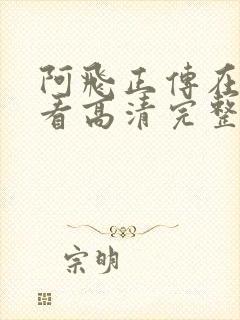 阿飛正傳在
看高清完整
宗明